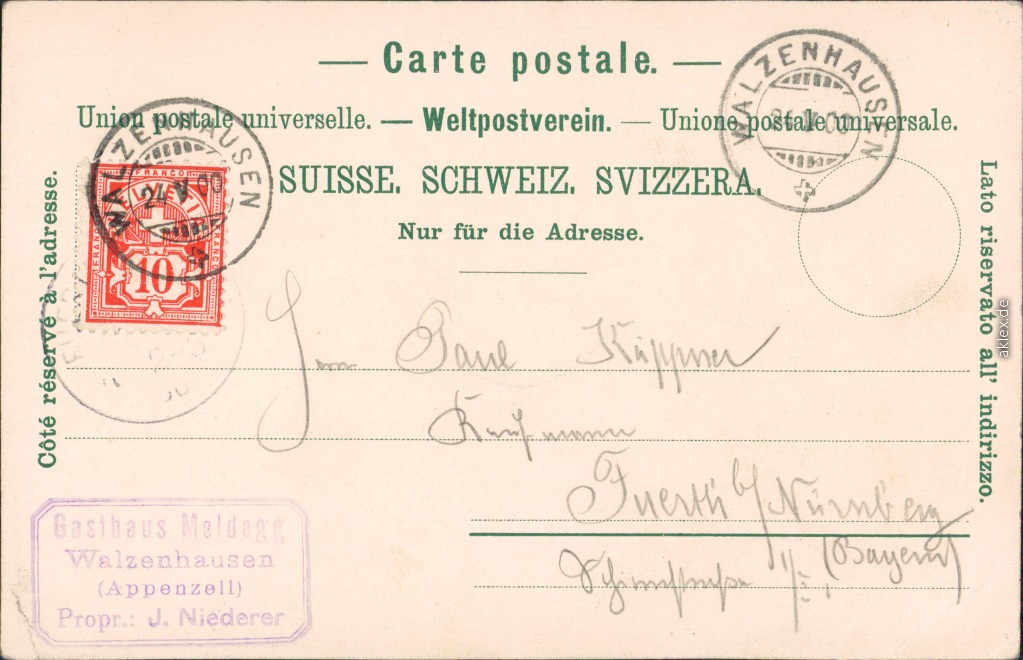 Carte postale.
Union postale universelle. — Weltpostverein. — Unione postale universale.
SUISSE. SCHWEIZ. SVIZZERA.
Nur für die Adresse.
Côté réservé à l'adresse.
Lato riservato all' indirizzo.
WALZENHAUSEN
24 V 00
WALZENHAUSEN
V 00
FRANCO
FRANCO
FRANCO
HELVETIA
10
Herrn Paul Küppner
Kaufmann
Fuerth b/ Nürnberg
(Bayern)
Gasthaus Meldegg
Walzenhausen
(Appenzell)
Propr.: J. Niederer
aklex.de